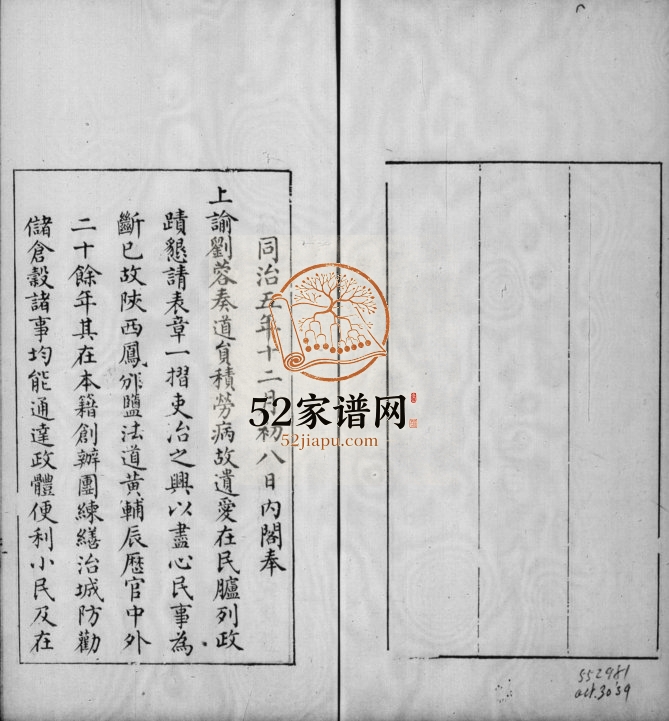 同治五年十二月初八日內閣奉
上諭劉蓉奏道員積勞病故遺愛在民臚列政
蹟懇請表章一摺吏治之興以盡心民事為
斷已故陝西鳳邠鹽法道黃輔辰歷官中外
二十餘年其在本籍創辦團練繕治城防勸
儲倉穀諸事均能通達政體便利小民及在
52家谱网
52jiapu.com
552981
oct.30'59